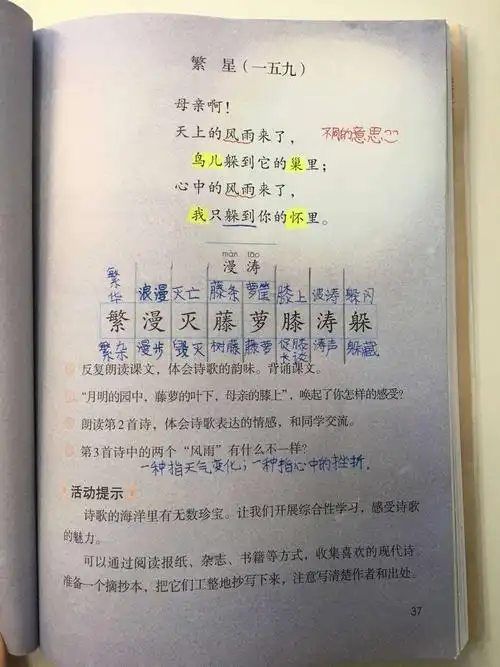 繁 星（一五九）
母亲啊！
天上的风雨来了，
不同的意思
鸟儿躲到它的巢里；
心中的风雨来了，
我只躲到你的怀里。
màn tāo
漫 涛
繁华 浪漫 灭亡 藤条 萝筐 膝上 波涛 躲闪
繁 漫 灭 藤 萝 膝 涛 躲
繁杂 漫步 毁灭 树藤 藤萝 促膝长谈 涛声 躲藏
反复朗读课文，体会诗歌的韵味。背诵课文。
“月明的园中，藤萝的叶下，母亲的膝上”，唤起了你怎样的感受？
朗读第2首诗，体会诗歌表达的情感，和同学交流。
第3首诗中的两个“风雨”有什么不一样？
一种指天气变化；一种指心中的挫折.
活动提示
诗歌的海洋里有无数珍宝。让我们开展综合性学习，感受诗歌
的魅力。
可以通过阅读报纸、杂志、书籍等方式，收集喜欢的现代诗。
准备一个摘抄本，把它们工整地抄写下来，注意写清楚作者和出处。
37